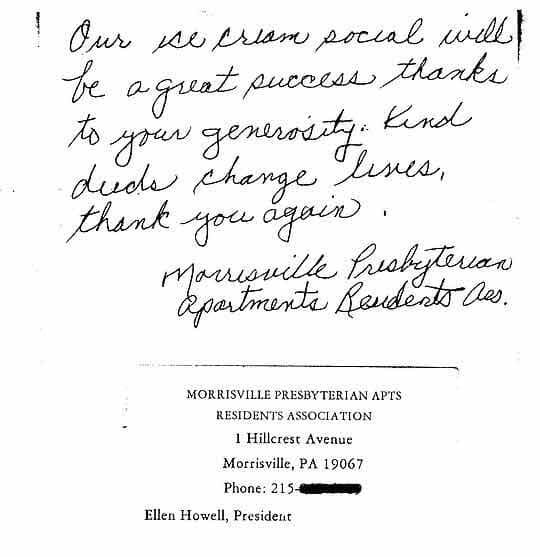 Our ice cream social will
be a great success thanks
to your generosity. Kind
deeds change lives,
thank you again.
Morrisville Presbyterian
Apartments Residents Ass.
MORRISVILLE PRESBYTERIAN APTS
RESIDENTS ASSOCIATION
1 Hillcrest Avenue
Morrisville, PA 19067
Phone: 215-
Ellen Howell, President